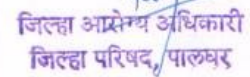 जिल्हा आरोग्य अधिकारी
जिल्हा परिषद, पालघर